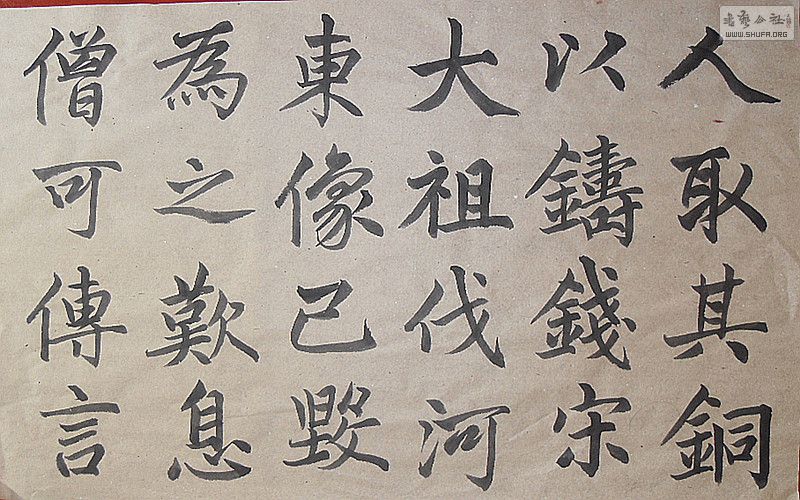 人取其銅
以鑄錢宋
大祖伐河
東像已毀
為之歎息
僧可傳言
WWW.SHUFA.ORG